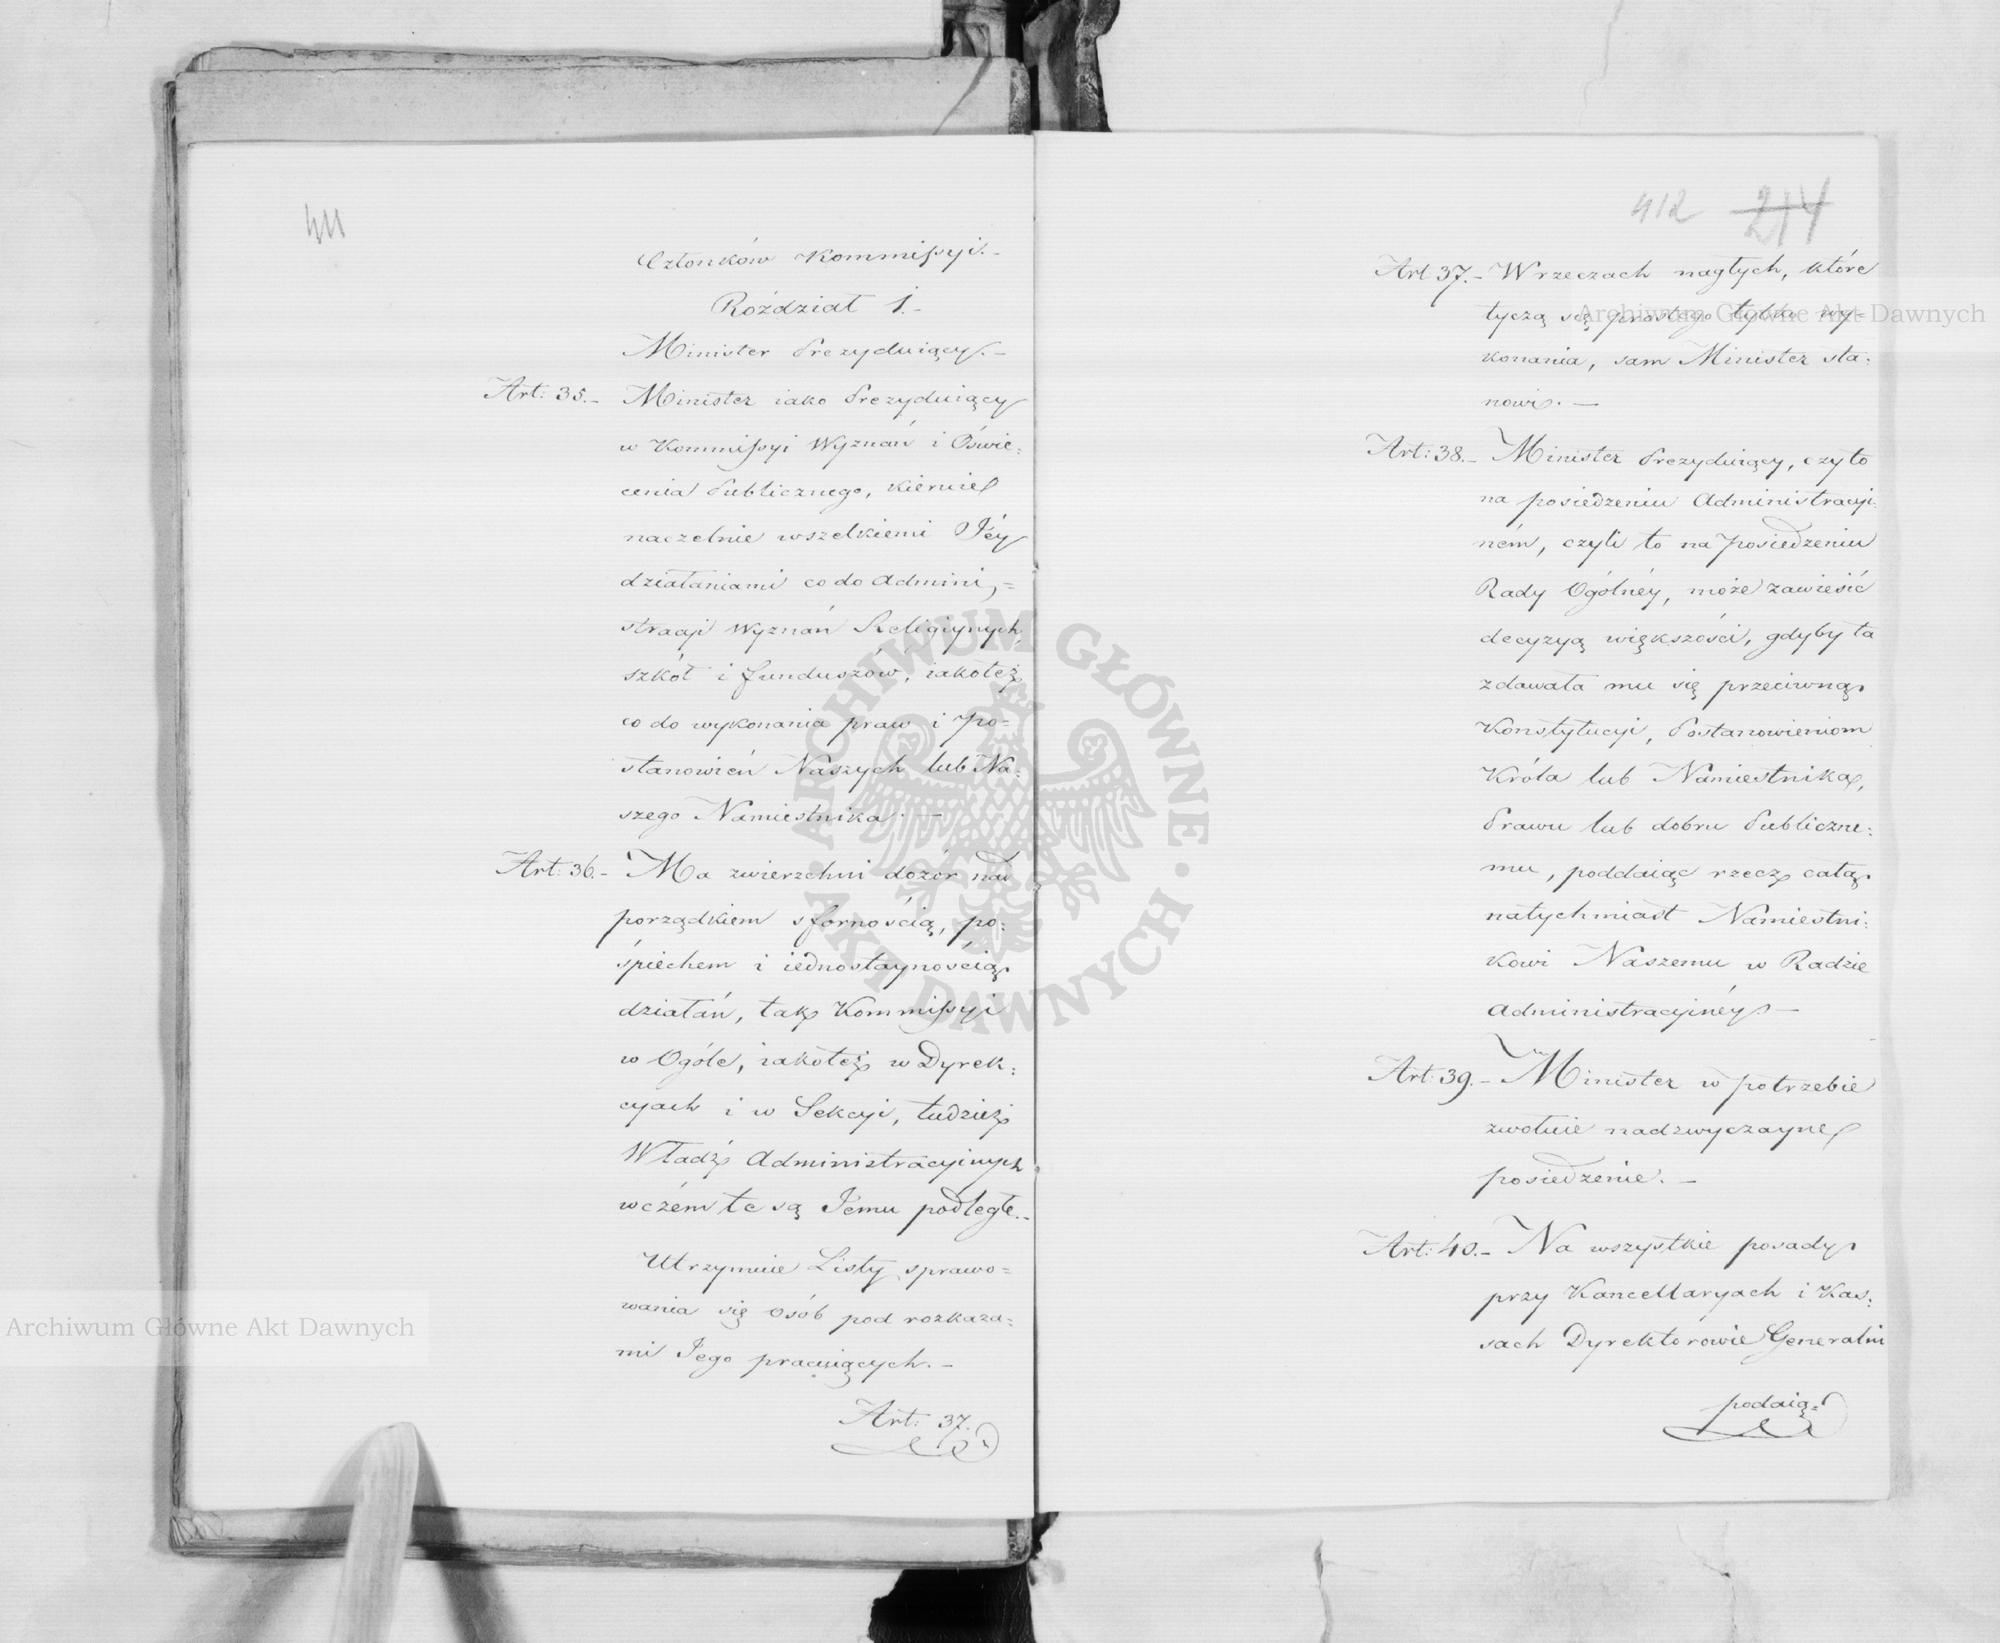 411
Członków Kommissyi.-
Roździał 1.-
Minister Prezyduiący.-
Art: 35.- Minister iako Prezyduiący
w Kommissyi Wyznań i Oświe:
cenia Publicznego, kieruie
naczelnie wszelkiemi Iéy
działaniami co do Admini,=
stracyi Wyznań Religiynych,
szkół i funduszów, iakoteż
co do wykonania praw i Po=
stanowień Naszych lub Na:
szego Namiestnika.-
Art: 36.- Ma zwierzchni dozór nad
porządkiem sfornością, po:
śpiechem i iednostaynością
działań, tak Kommissyi
w Ogóle, iakoteż w Dyrek:
cyach i w Sekcyi, tudzież
Władz Administracyinych
wczém te są Iemu podległe.-
Utrzymuie Listy sprawo=
wania się osób pod rozkaza=
mi Iego pracuiących.-
Art: 37.
412 214
Art 37.- W rzeczach nagłych, które
tyczą się prostego tylko wy=
konania, sam Minister sta:
nowi.-
Art: 38.- Minister Prezyduiący, czy to
na posiedzeniu Administracyi:
ném, czyli to na Posiedzeniu
Rady Ogólnéy, może zawiesić
decyzyą większości, gdyby ta
zdawała mu się przeciwną
Konstytucyi, Postanowieniom
Króla lub Namiestnika,
Prawu lub dobru Publiczne:
mu, poddaiąc rzecz całą
natychmiast Namiestni:
kowi Naszemu w Radzie
Administracyinéy-
Art: 39.- Minister w potrzebie
zwołuie nadzwyczayne
posiedzenie.-
Art: 40.- Na wszystkie posady
przy Kancellaryach i Kas:
sach Dyrektorowie Generalni
podaią=
Archiwum Główne Akt Dawnych
Archiwum Główne Akt Dawnych
ARCHIWUM GŁÓWNE AKT DAWNYCH